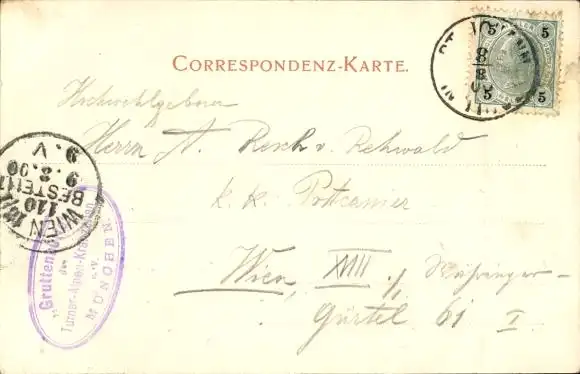 CORRESPONDENZ-KARTE.
5 5
5 5
ST. JOHANN
8
8
00
Hochwohlgeboren
Herrn A. Resch v. Rehwald
k. k. Postcassier
Wien, XVIII /1, Währinger-
Gürtel 61 I
WIEN 18/1
110
BESTELLT
9.8.00
9.V
Grutten
der
Turner-Alpen-Kränzchen
e.V.
MÜNCHEN